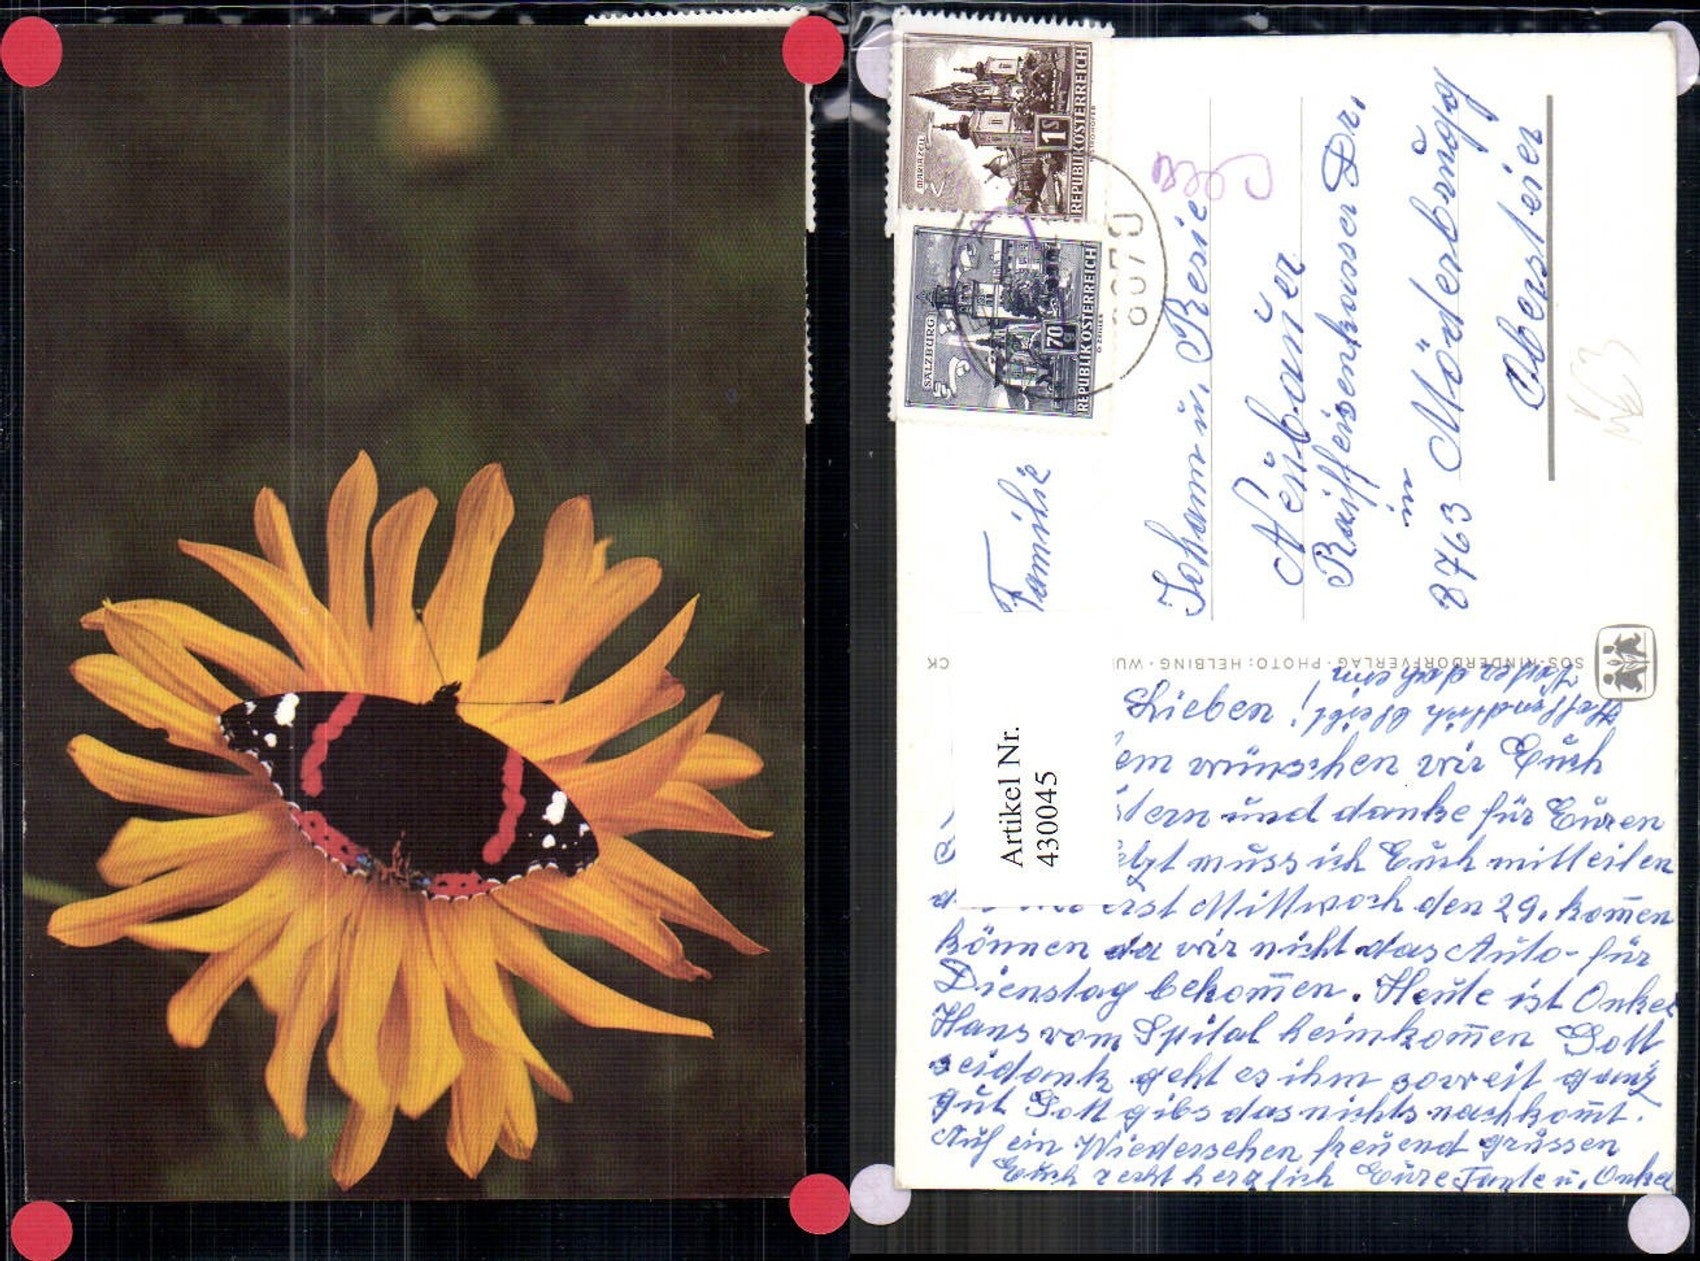 MARIAZELL
1 S
REPUBLIK ÖSTERREICH
SALZBURG
70 g
REPUBLIK ÖSTERREICH
8070
Familie
Johann u. Resie
Neubauer
Raiffeisenkasser Dr.
in
8763 Möderbrugg
Obersteier
SOS-KINDERDORFVERLAG · PHOTO: HELBING · WU
CK
Artikel Nr.
430045
Lieben
wünschen wir Euch
und danke für Euren
muss ich Euch mitteilen
erst Mittwoch den 29. kom̄en
können da wir nicht das Auto für
Dienstag bekom̄en. Heute ist Onkel
Hans vom Spital heimkom̄en Gott
seidank geht es ihm soweit ganz
gut Gott gibs das nichts nachkom̄t.
Auf ein Wiedersehen freuend grüssen
Euch recht herzlich Eure Tante u. Onkel